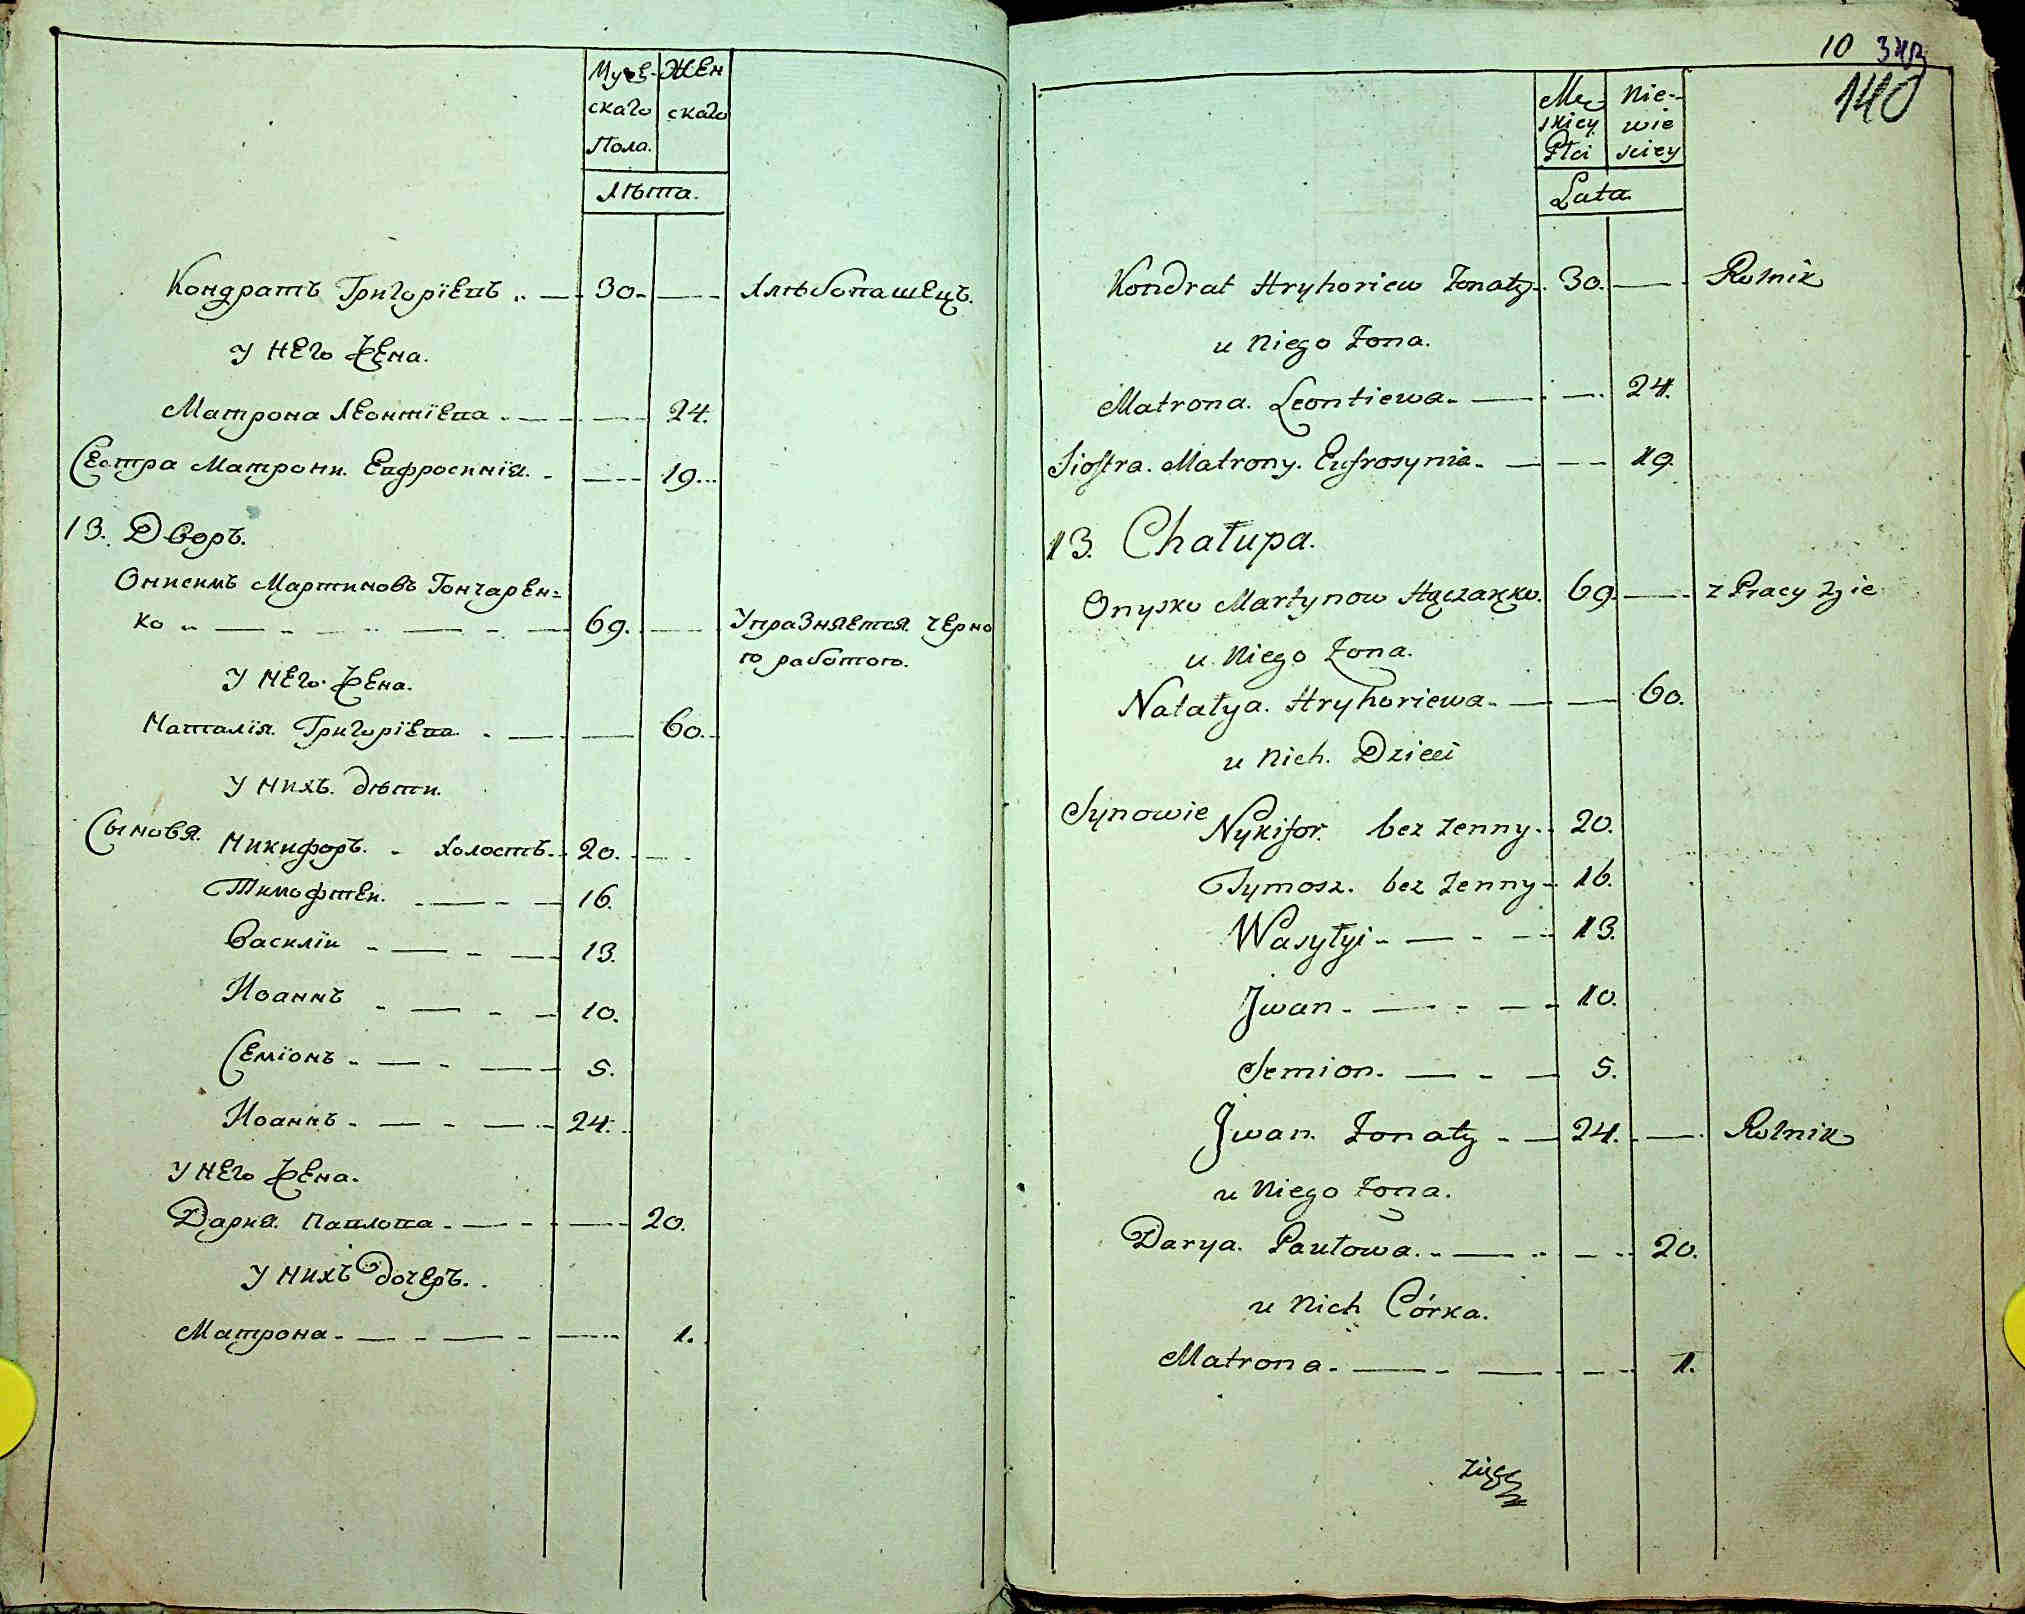 Мужe-
скаго
Пола.
Жен
скаго
Лѣта.
Кондратъ Григорїевъ 30.
у него жена.
Матрона Леонтїева 24.
Сестра Матрони. Евфросинїя. 19.
13. Дворъ.
Онисимъ Мартиновъ Гончарен=
ко 69. Упразняется черно
ю работою.
у него жена.
Наталїя. Григорїева. 60.
у нихъ. дѣти.
Сыновя. Никифоръ. холостъ. 20.
Тимофтей. 16.
Василїи 13.
Иоаннъ 10.
Семїонъ 5.
Иоаннъ 24.
у него жена.
Дария. Павлова 20.
у нихъ дочеръ.
Матрона 1.
10 343
140
Mę
skiey
Płci
Nie-
wie
sciey
Lata.
Kondrat Hryhoriew Żonaty 30. Rolnik
u Niego Żona.
Matrona. Leontiewa 24.
Siostra. Matrony. Eufrosynia 19.
13. Chałupa.
Onysko Martynow 69. z Pracy żyie
u Niego Żona.
Natałya. Hryhoriewa 60.
u Nich. Dzieci
Synowie Nykifor. bez żenny 20.
Tymosz. bez żenny 16.
Wasyłyi 13.
Jwan 10.
Semion. 5.
Jwan. Żonaty 24. Rolnik
u Niego żona.
Darya. Pawłowa. 20.
u Nich Córka.
Matrona 1.